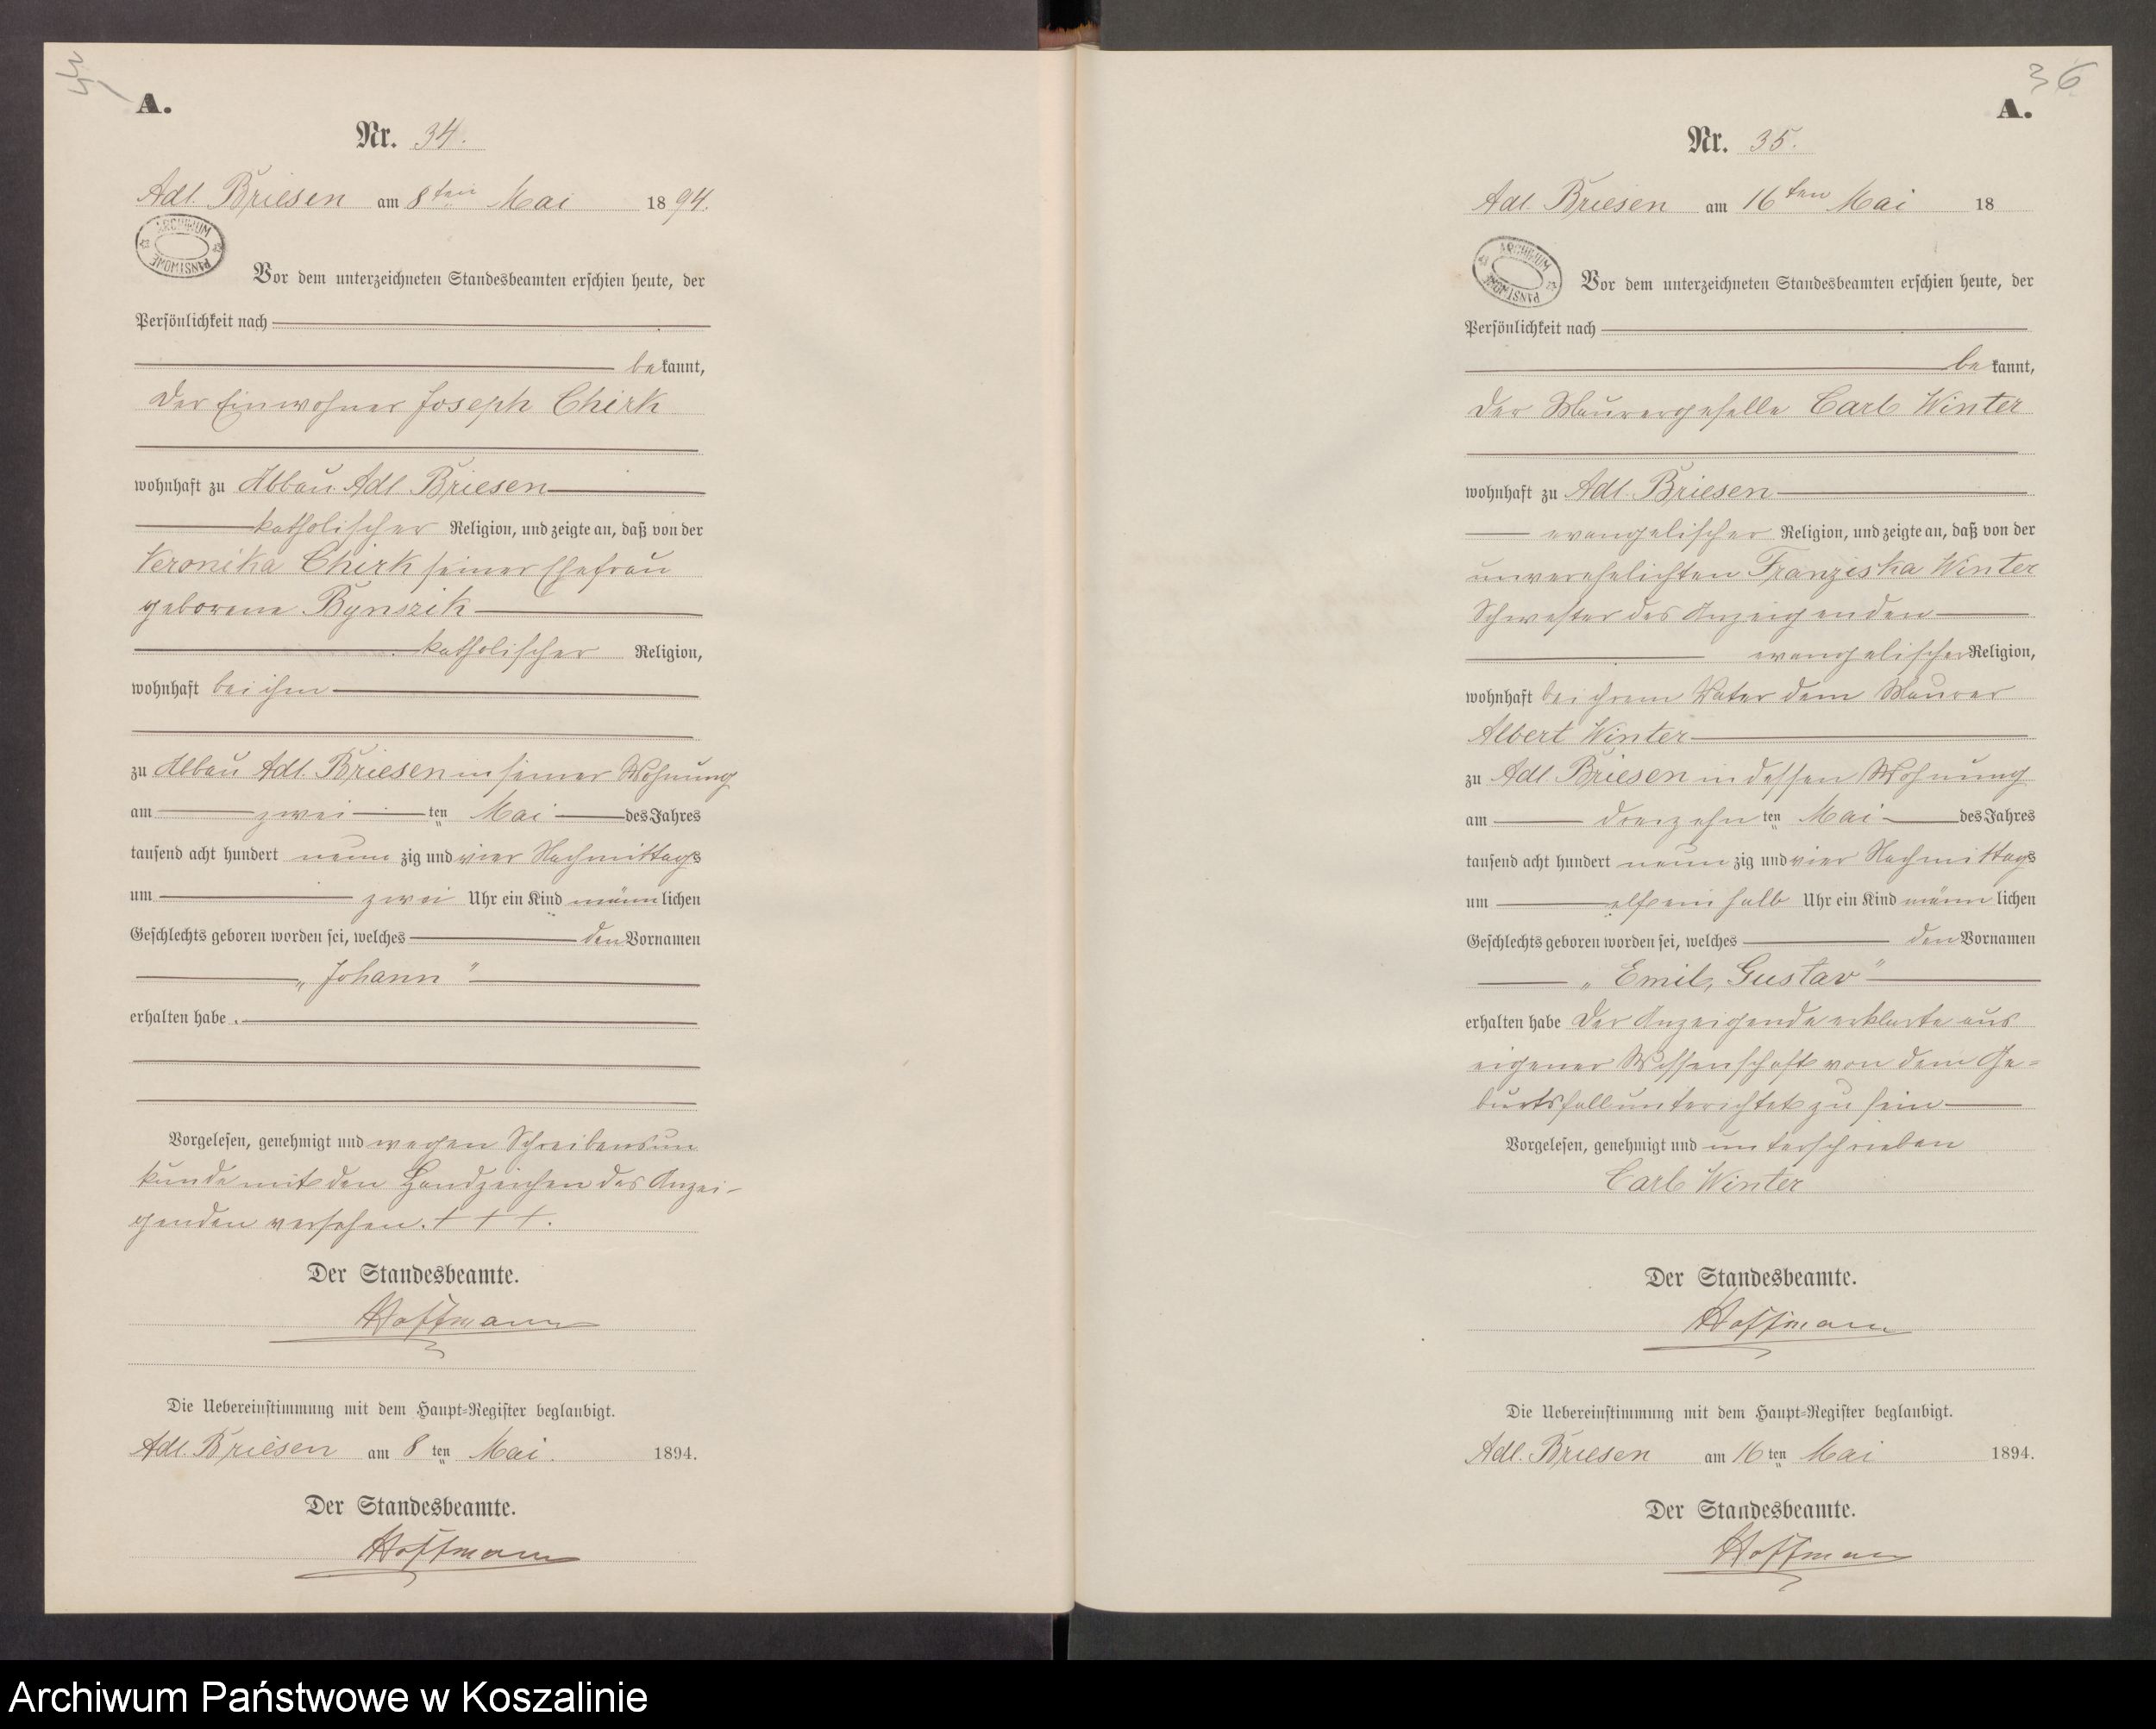 A.
Nr. 34.
Adl. Briesen am 8ten Mai 1894.
ARCHIWUM PAŃSTWOWE
Vor dem unterzeichneten Standesbeamten erschien heute, der
Persönlichkeit nach
bekannt,
der Einwohner Joseph Chirk
wohnhaft zu Abbau Adl. Briesen
katholischer Religion, und zeigte an, daß von der
Veronika Chirk seiner Ehefrau
geborene Bynszik
katholischer Religion,
wohnhaft bei ihm
zu Abbau Adl. Briesen in seiner Wohnung
am zwei ten Mai des Jahres
tausend acht hundert neun zig und vier Nachmittags
um zwei Uhr ein Kind männlichen
Geschlechts geboren worden sei, welches den Vornamen
„Johann"
erhalten habe.
Vorgelesen, genehmigt und wegen Schreibensun
kunde mit den Handzeichen des Anzei-
genden versehen. + + +.
Der Standesbeamte.
Hoffmann
Die Uebereinstimmung mit dem Haupt-Register beglaubigt.
Adl. Briesen am 8 ten Mai. 1894.
Der Standesbeamte.
Hoffmann
36
A.
Nr. 35.
Adl. Briesen am 16ten Mai 18
ARCHIWUM PAŃSTWOWE
Vor dem unterzeichneten Standesbeamten erschien heute, der
Persönlichkeit nach
bekannt,
der Maurergeselle Carl Winter
wohnhaft zu Adl. Briesen
evangelischer Religion, und zeigte an, daß von der
unverehelichten Franziska Winter
Schwester des Anzeigenden
evangelischer Religion,
wohnhaft bei ihrem Vater dem Maurer
Albert Winter
zu Adl. Briesen in dessen Wohnung
am dreizehn ten Mai des Jahres
tausend acht hundert neun zig und vier Nachmittags
um elf ein halb Uhr ein Kind männlichen
Geschlechts geboren worden sei, welches den Vornamen
„Emil, Gustav"
erhalten habe der Anzeigende erklarte aus
eigener Wissenschaft von dem Ge=
burtsfall unterichtet zu sein
Vorgelesen, genehmigt und unterschrieben
Carl Winter
Der Standesbeamte.
Hoffmann
Die Uebereinstimmung mit dem Haupt-Register beglaubigt.
Adl. Briesen am 16 ten Mai 1894.
Der Standesbeamte.
Hoffmann
Archiwum Państwowe w Koszalinie